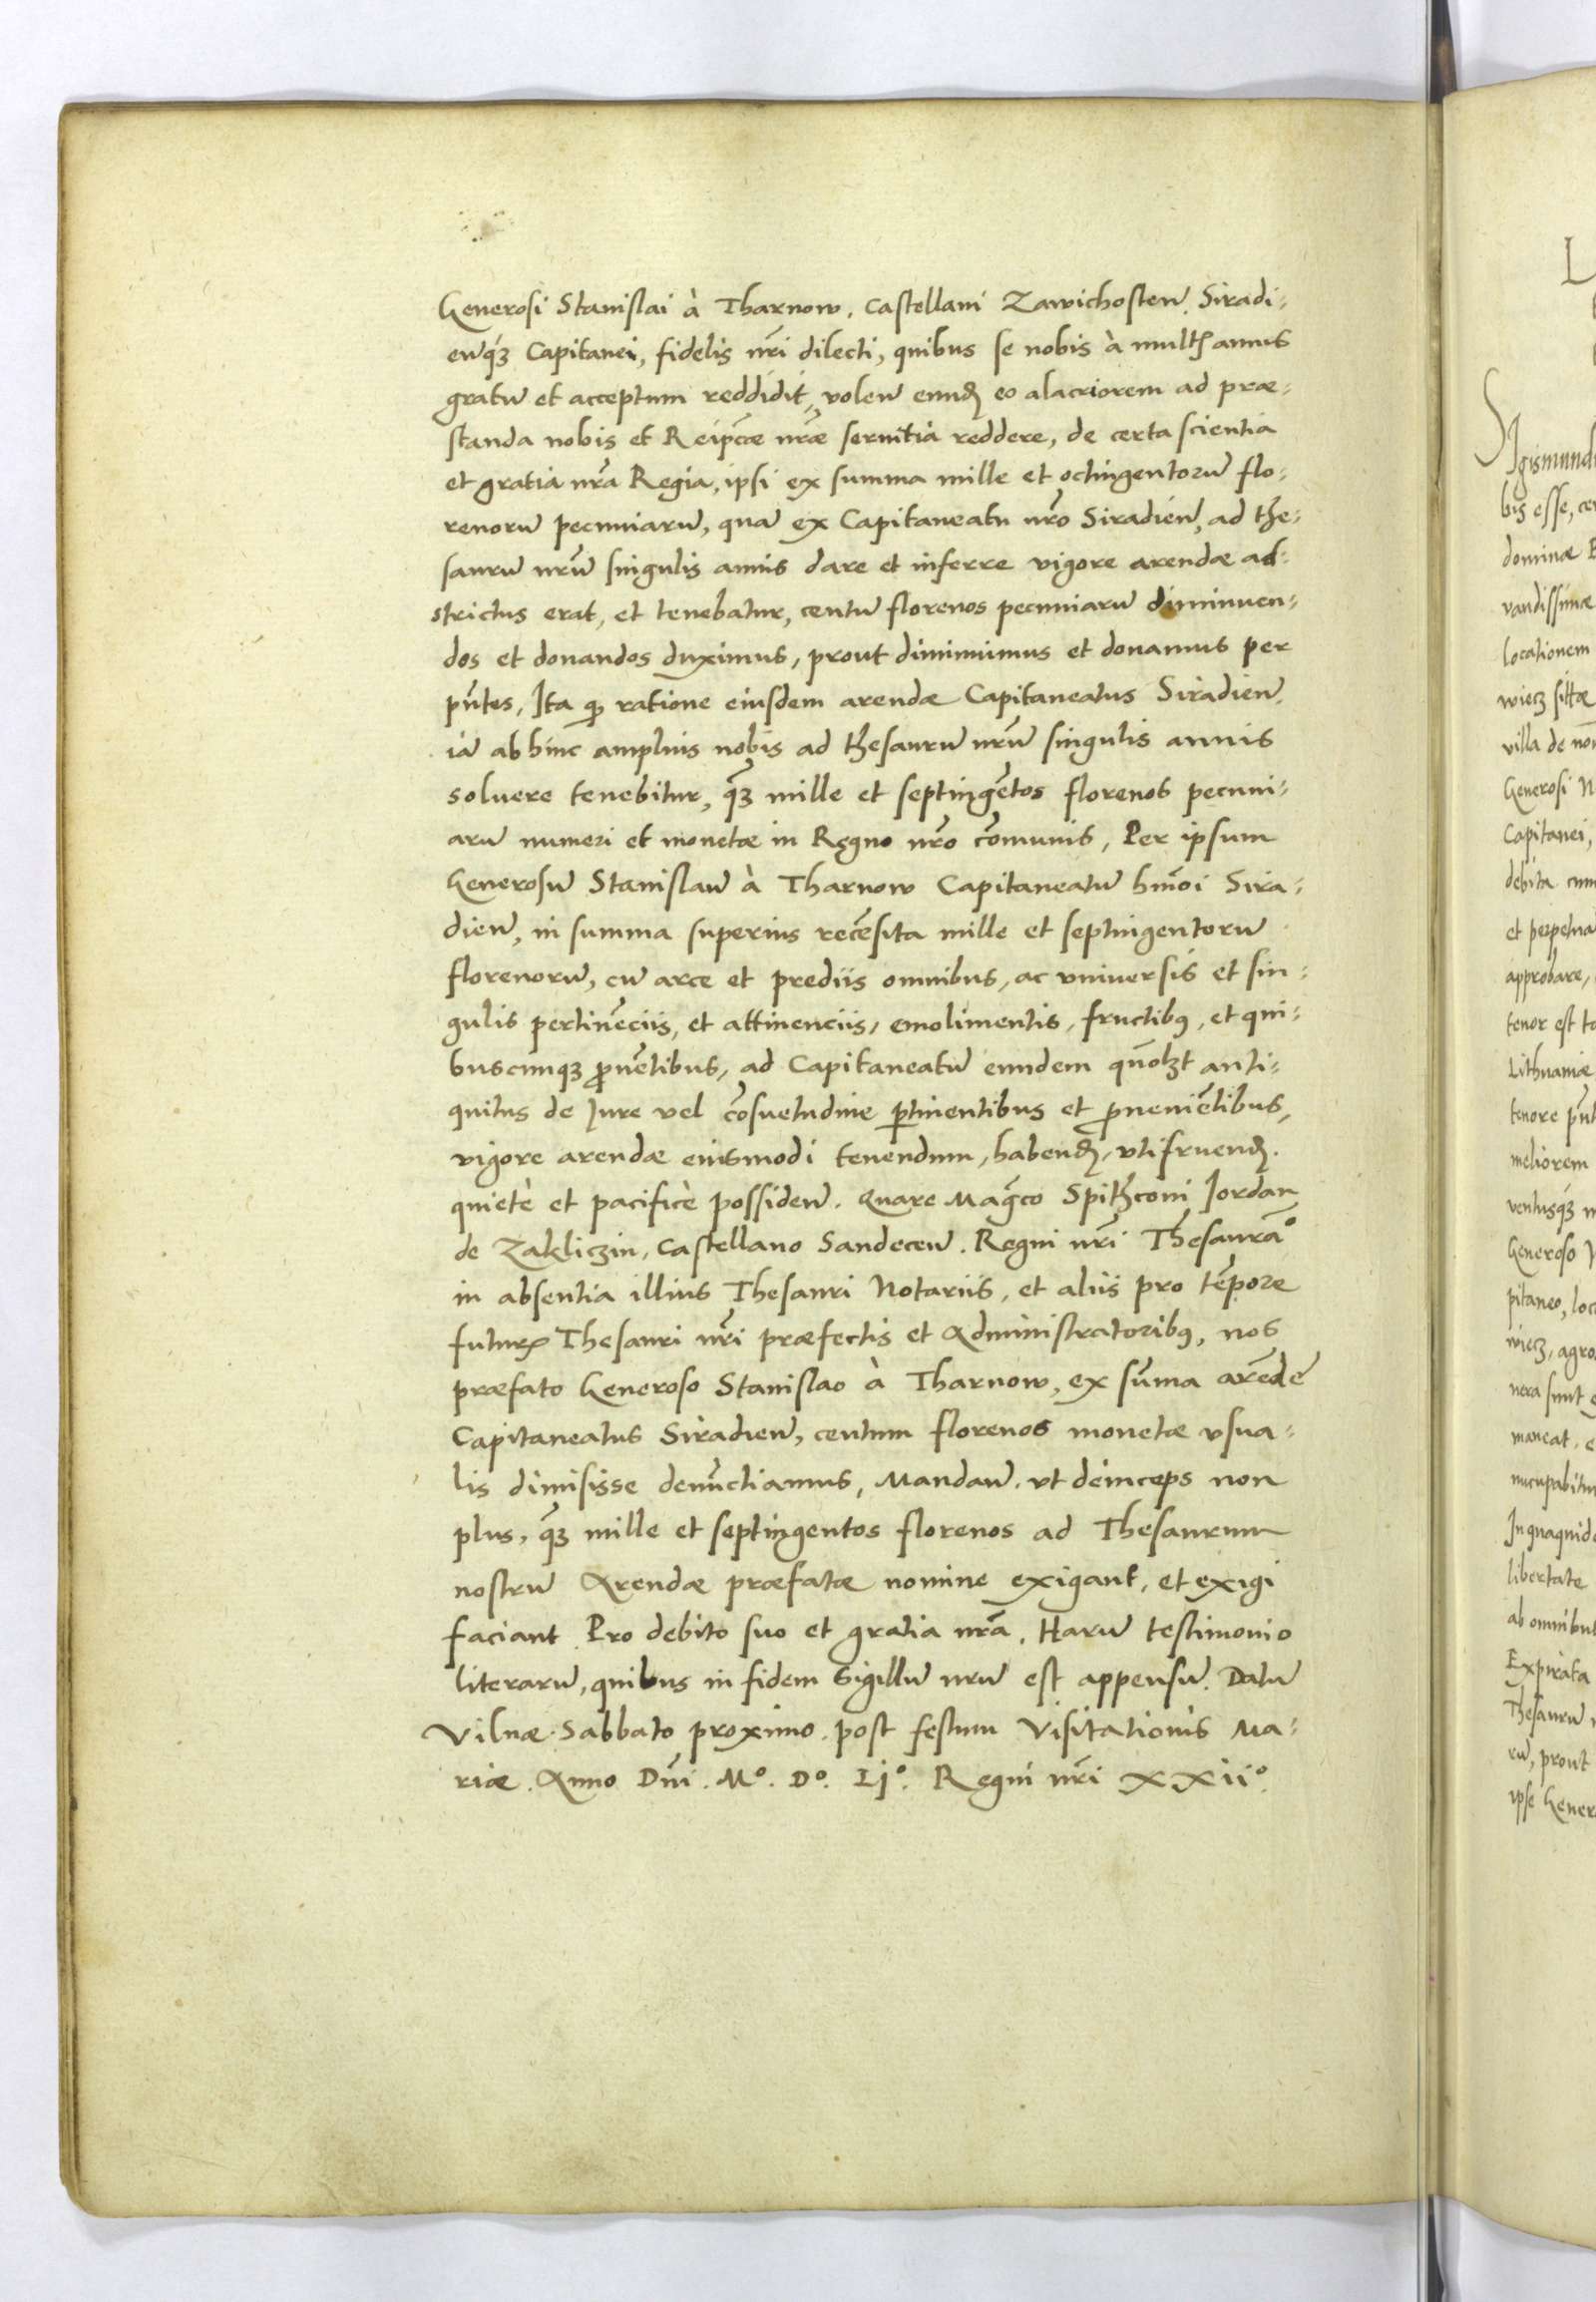 Generosi Stanislai à Tharnow, Castellani Zawichosten̄. Siradi-
en̄q́ꝫ Capitanei, fidelis nr̄i dilecti, quibus se nobis à mult꜒ annis
gratū et acceptum reddidit, volen̄ eundꝫ eo alacriorem ad præ-
standa nobis et Reip̄cæ nr̄æ seruitia reddere, de certa scientia
et gratia nr̄a Regia, ipsi ex summa mille et octingentorū flo-
renorū pecuniarū, quā ex Capitaneatu nr̄o Siradien̄, ad the-
saurū nr̄ū singulis annis dare et inferre vigore arendæ ad-
strictus erat, et tenebatur, centū florenos pecuniarū diminuen-
dos et donandos duximus, prout diminuimus et donamus per
pn̄tes, Ita qꝫ ratione eiusdem arendæ Capitaneatus Siradien̄,
iā abhinc amplius nobis ad thesaurū nr̄ū singulis annis
soluere tenebitur, q̄ꝫ mille et septingētos florenos pecuni-
arū numeri et monetæ in Regno nr̄o cōmunis, Per ipsum
Generosū Stanislaū à Tharnow Capitaneatū hm̄oi Sira-
dien̄, in summa superius recēsita mille et septingentorū
florenorū, cū arce et prediis omnibus, ac vniuersis et sin-
gulis pertinēciis, et attinenciis, emolimentis, fructibꝰ, et qui-
buscunqꝫ ꝓuētibus, ad Capitaneatū eundem quōlꝫt anti-
quitus de Iure vel cōsuetudine ꝑtinentibus et ꝓueniētibus,
vigore arendæ eiusmodi tenendum, habendꝫ, vtifruendꝫ.
quietè et pacificè possiden̄. Quare Maḡco Spithconi Iordan
de Zakliczin, Castellano Sandecen̄. Regni nr̄i Thesaurā°
in absentia illius Thesauri Notariis, et aliis pro tēpore
futurꝭ Thesauri nr̄i præfectis et Administratoribꝰ, nos
præfato Generoso Stanislao à Tharnow, ex sūma arēde
Capitaneatus Siradien̄, centum florenos monetæ vsua-
lis dimisisse denūctiamus, Mandan̄. vt deinceps non
plus, q̄ꝫ mille et septingentos florenos ad Thesaurum
nostrū Arendæ præfatæ nomine exigant, et exigi
faciant Pro debito suo et gratia nr̄a. Harū testimonio
literarū, quibus in fidem Sigillū nrū est appensū. Datū
Vilnæ Sabbato proximo post festum Visitationis Ma-
riæ. Anno Dn̄i. M°. D°. Lj°. Regni nr̄i xxii°.